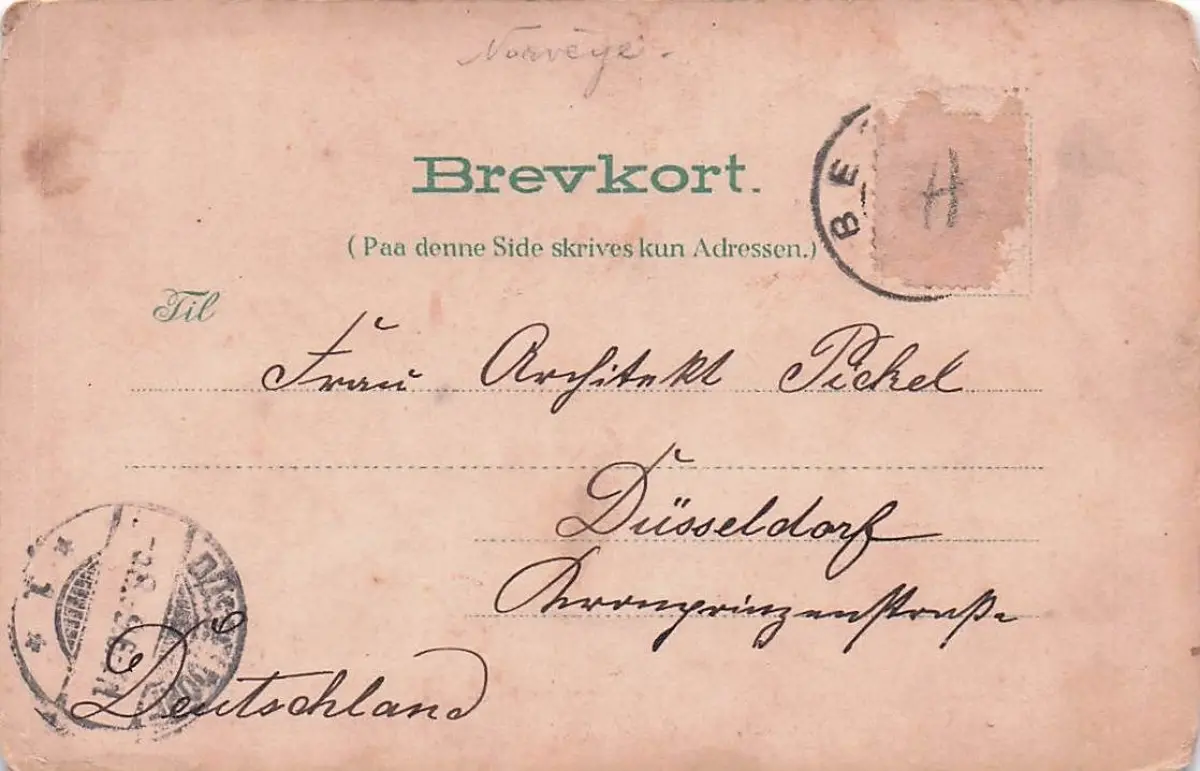 Norvège.
Brevkort.
(Paa denne Side skrives kun Adressen.)
BE
H
Til
Frau Architekt Pickel
Düsseldorf
Kronprinzenstraße
Deutschland
* 1 *